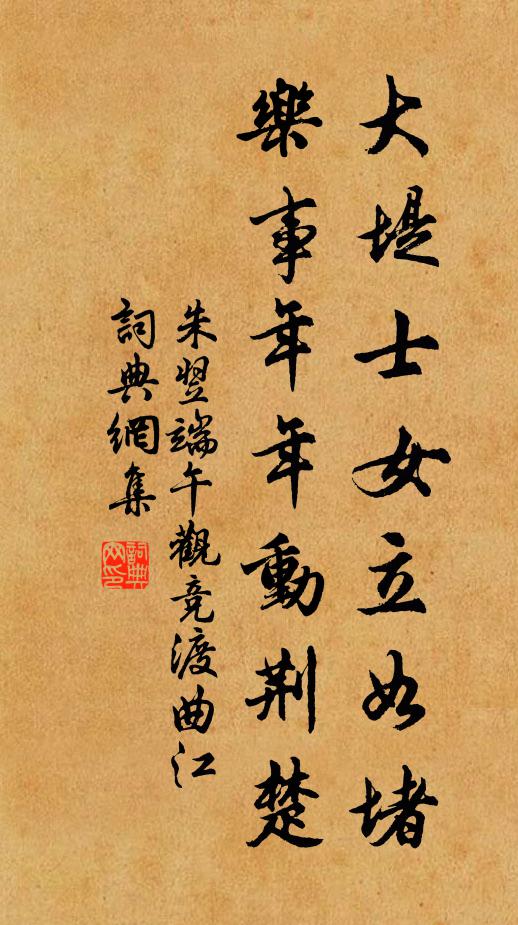 大堤士女立如堵
樂事年年動荆楚
朱翌端午觀竞渡曲江
詞典網集
詞典网印